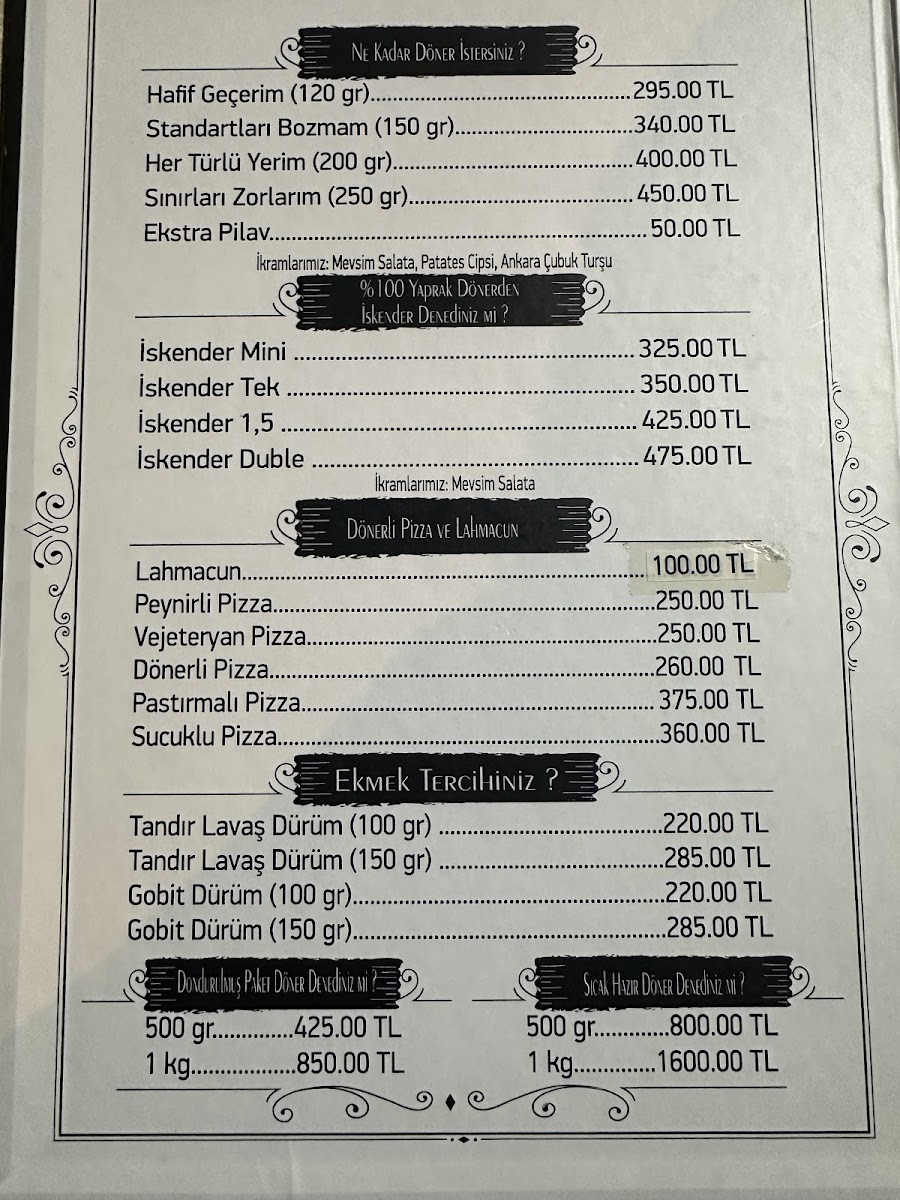 Ne Kadar Döner İstersiniz ?
Hafif Geçerim (120 gr)..........295.00 TL
Standartları Bozmam (150 gr)..........340.00 TL
Her Türlü Yerim (200 gr)..........400.00 TL
Sınırları Zorlarım (250 gr)..........450.00 TL
Ekstra Pilav..........50.00 TL
İkramlarımız: Mevsim Salata, Patates Cipsi, Ankara Çubuk Turşu
%100 Yaprak Dönerden
İskender Denediniz mi ?
İskender Mini ..........325.00 TL
İskender Tek ..........350.00 TL
İskender 1,5 ..........425.00 TL
İskender Duble ..........475.00 TL
İkramlarımız: Mevsim Salata
Dönerli Pizza ve Lahmacun
Lahmacun..........100.00 TL
Peynirli Pizza..........250.00 TL
Vejeteryan Pizza..........250.00 TL
Dönerli Pizza..........260.00 TL
Pastırmalı Pizza..........375.00 TL
Sucuklu Pizza..........360.00 TL
Ekmek Tercihiniz ?
Tandır Lavaş Dürüm (100 gr) ..........220.00 TL
Tandır Lavaş Dürüm (150 gr) ..........285.00 TL
Gobit Dürüm (100 gr)..........220.00 TL
Gobit Dürüm (150 gr)..........285.00 TL
Dondurulmuş Paket Döner Denediniz mi ?
500 gr..........425.00 TL
1 kg..........850.00 TL
Sıcak Hazır Döner Denediniz mi ?
500 gr..........800.00 TL
1 kg..........1600.00 TL